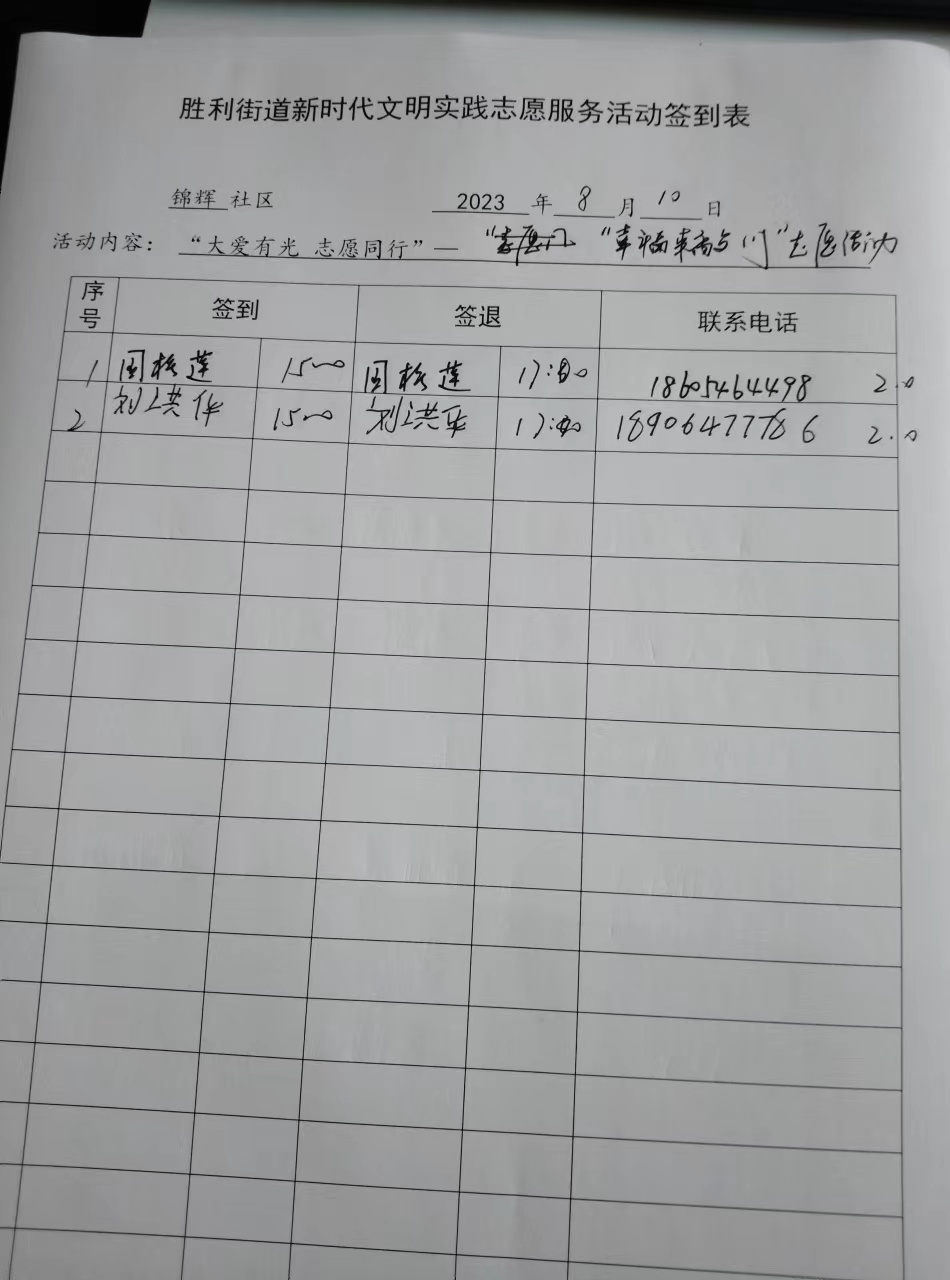 胜利街道新时代文明实践志愿服务活动签到表
锦辉 社区 2023 年 8 月 10 日
活动内容： “大爱有光 志愿同行”— “幸福来敲门”志愿活动
序号 签到 签退 联系电话
1 周桂莲 1500 周桂莲 17:00 18605464498 2.0
2 刘洪华 1500 刘洪华 17:00 18906477786 2.0